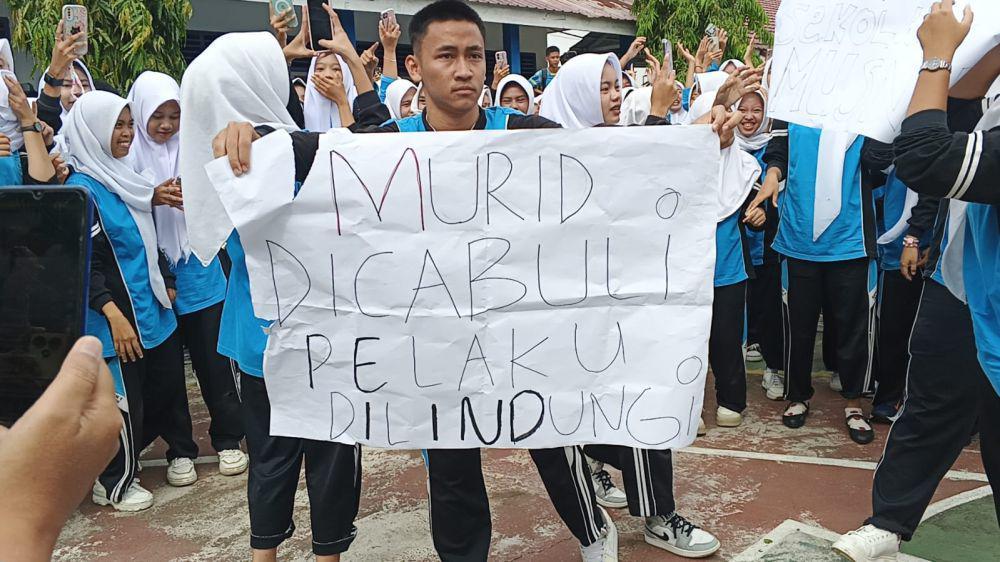 MURID
DICABULI
PELAKU
DILINDUNGI
SEKOL
MUS